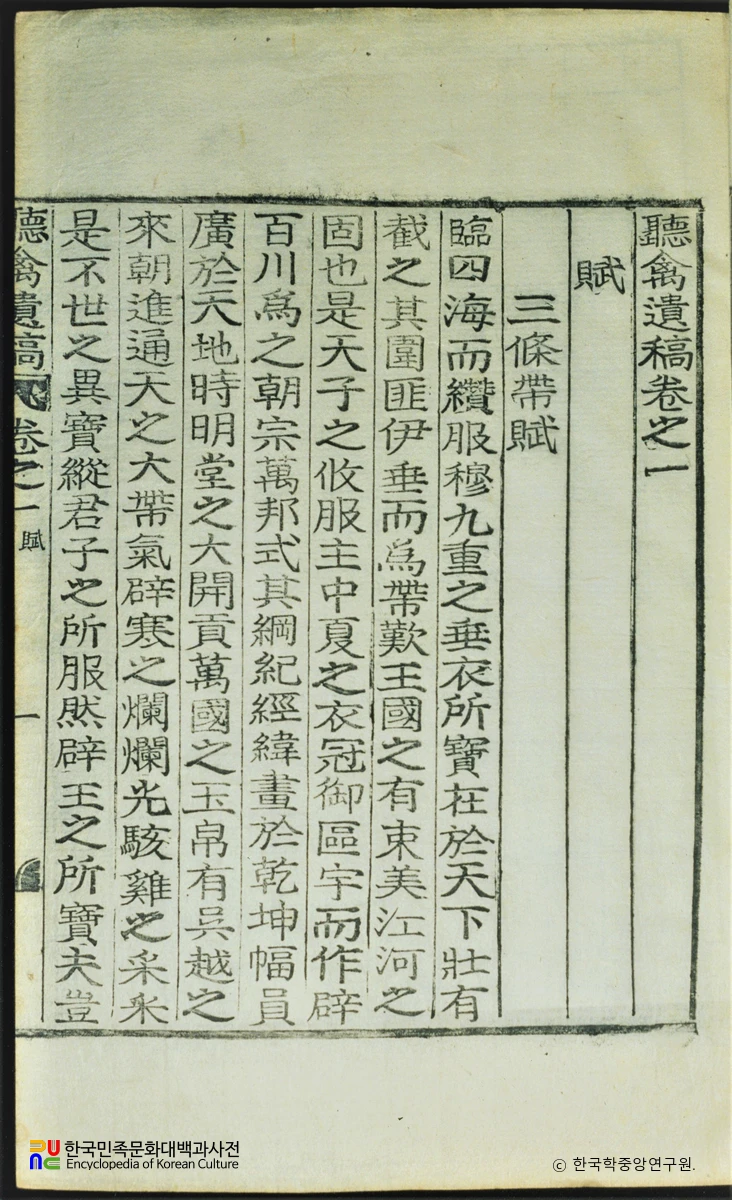 聽禽遺稿卷之一
賦
三條帶賦
臨四海而纘服穆九重之垂衣所寶在於天下壯有
截之其圍匪伊垂而爲帶歎王國之有束美江河之
固也是天子之攸服主中夏之衣冠御區宇而作辟
百川爲之朝宗萬邦式其綱紀經緯畫於乾坤幅員
廣於天地時明堂之大開貢萬國之玉帛有吳越之
來朝進通天之大帶氣辟寒之爛爛光駭雞之采采
是不世之異寶縱君子之所服然辟王之所寶夫豈
聽禽遺稿 卷之一 賦 一
한국민족문화대백과사전
Encyclopedia of Korean Culture
ⓒ 한국학중앙연구원.